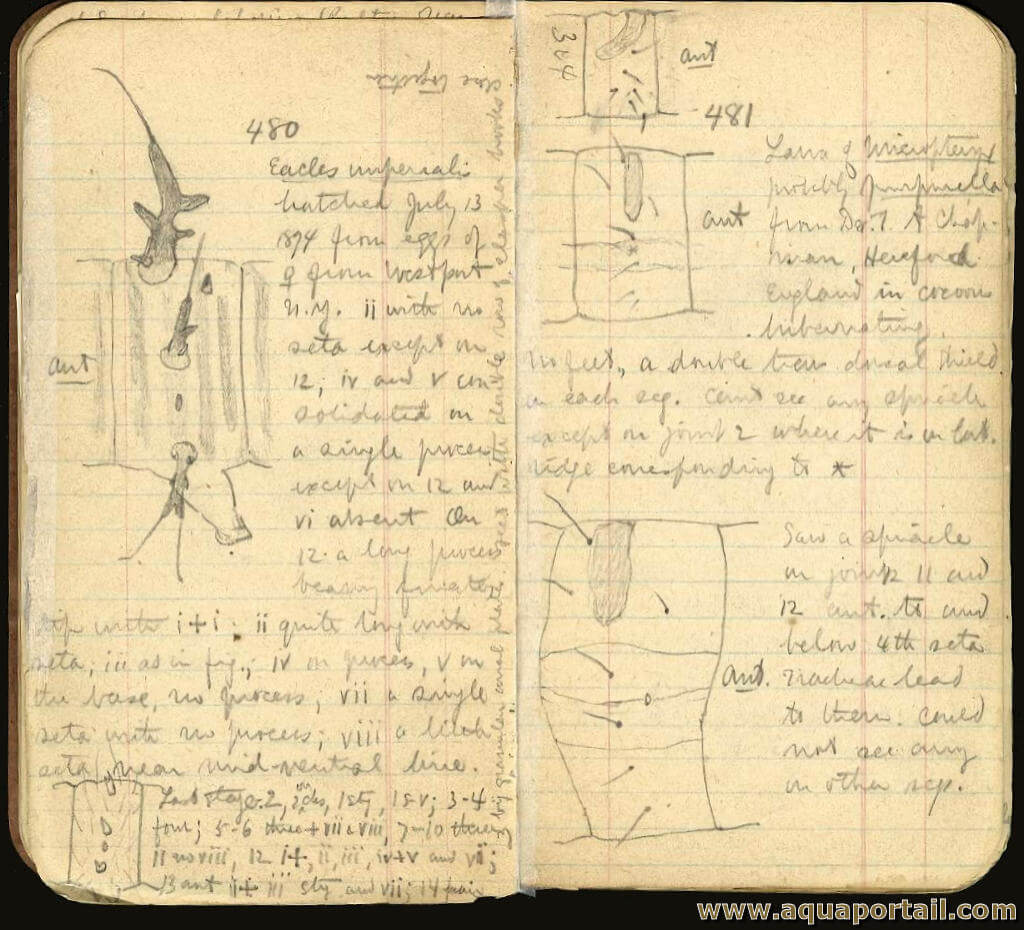 480
Eacles imperialis
hatched July 13
1894 from eggs of
♀ from Westport
N.Y. ii with no
seta except on
12; iv and v con
solidated on
a single process
except on 12 and
vi absent On
12 a long process
bearing
tip with i+i. ii quite long with
seta; iii as in fig.; iv on process, v on
the base, no process; vii a single
seta with no process; viii a
seta near mid-ventral line.
Last stage. 2,
four; 5-6 three + vii & viii, 7-10 three
11 no viii, 12 i+, ii, iii, iv+v and vii;
13 ant ii+ iii and vii; 14
close together
ant
304
ant
481
Larva of Micropteryx
probably purpurella
from Dr. T. A Chap-
man, Hereford
England in cocoon
hibernating.
No feet, a double dorsal shield
on each seg. Cant see any spiracle
except on joint 2 where it is on lat.
ridge corresponding to *
ant
Saw a spiracle
on joints 11 and
12 ant. to and
below 4th seta
Tracheae lead
to them. Could
not see any
on other seg.
Ant.
www.aquaportail.com